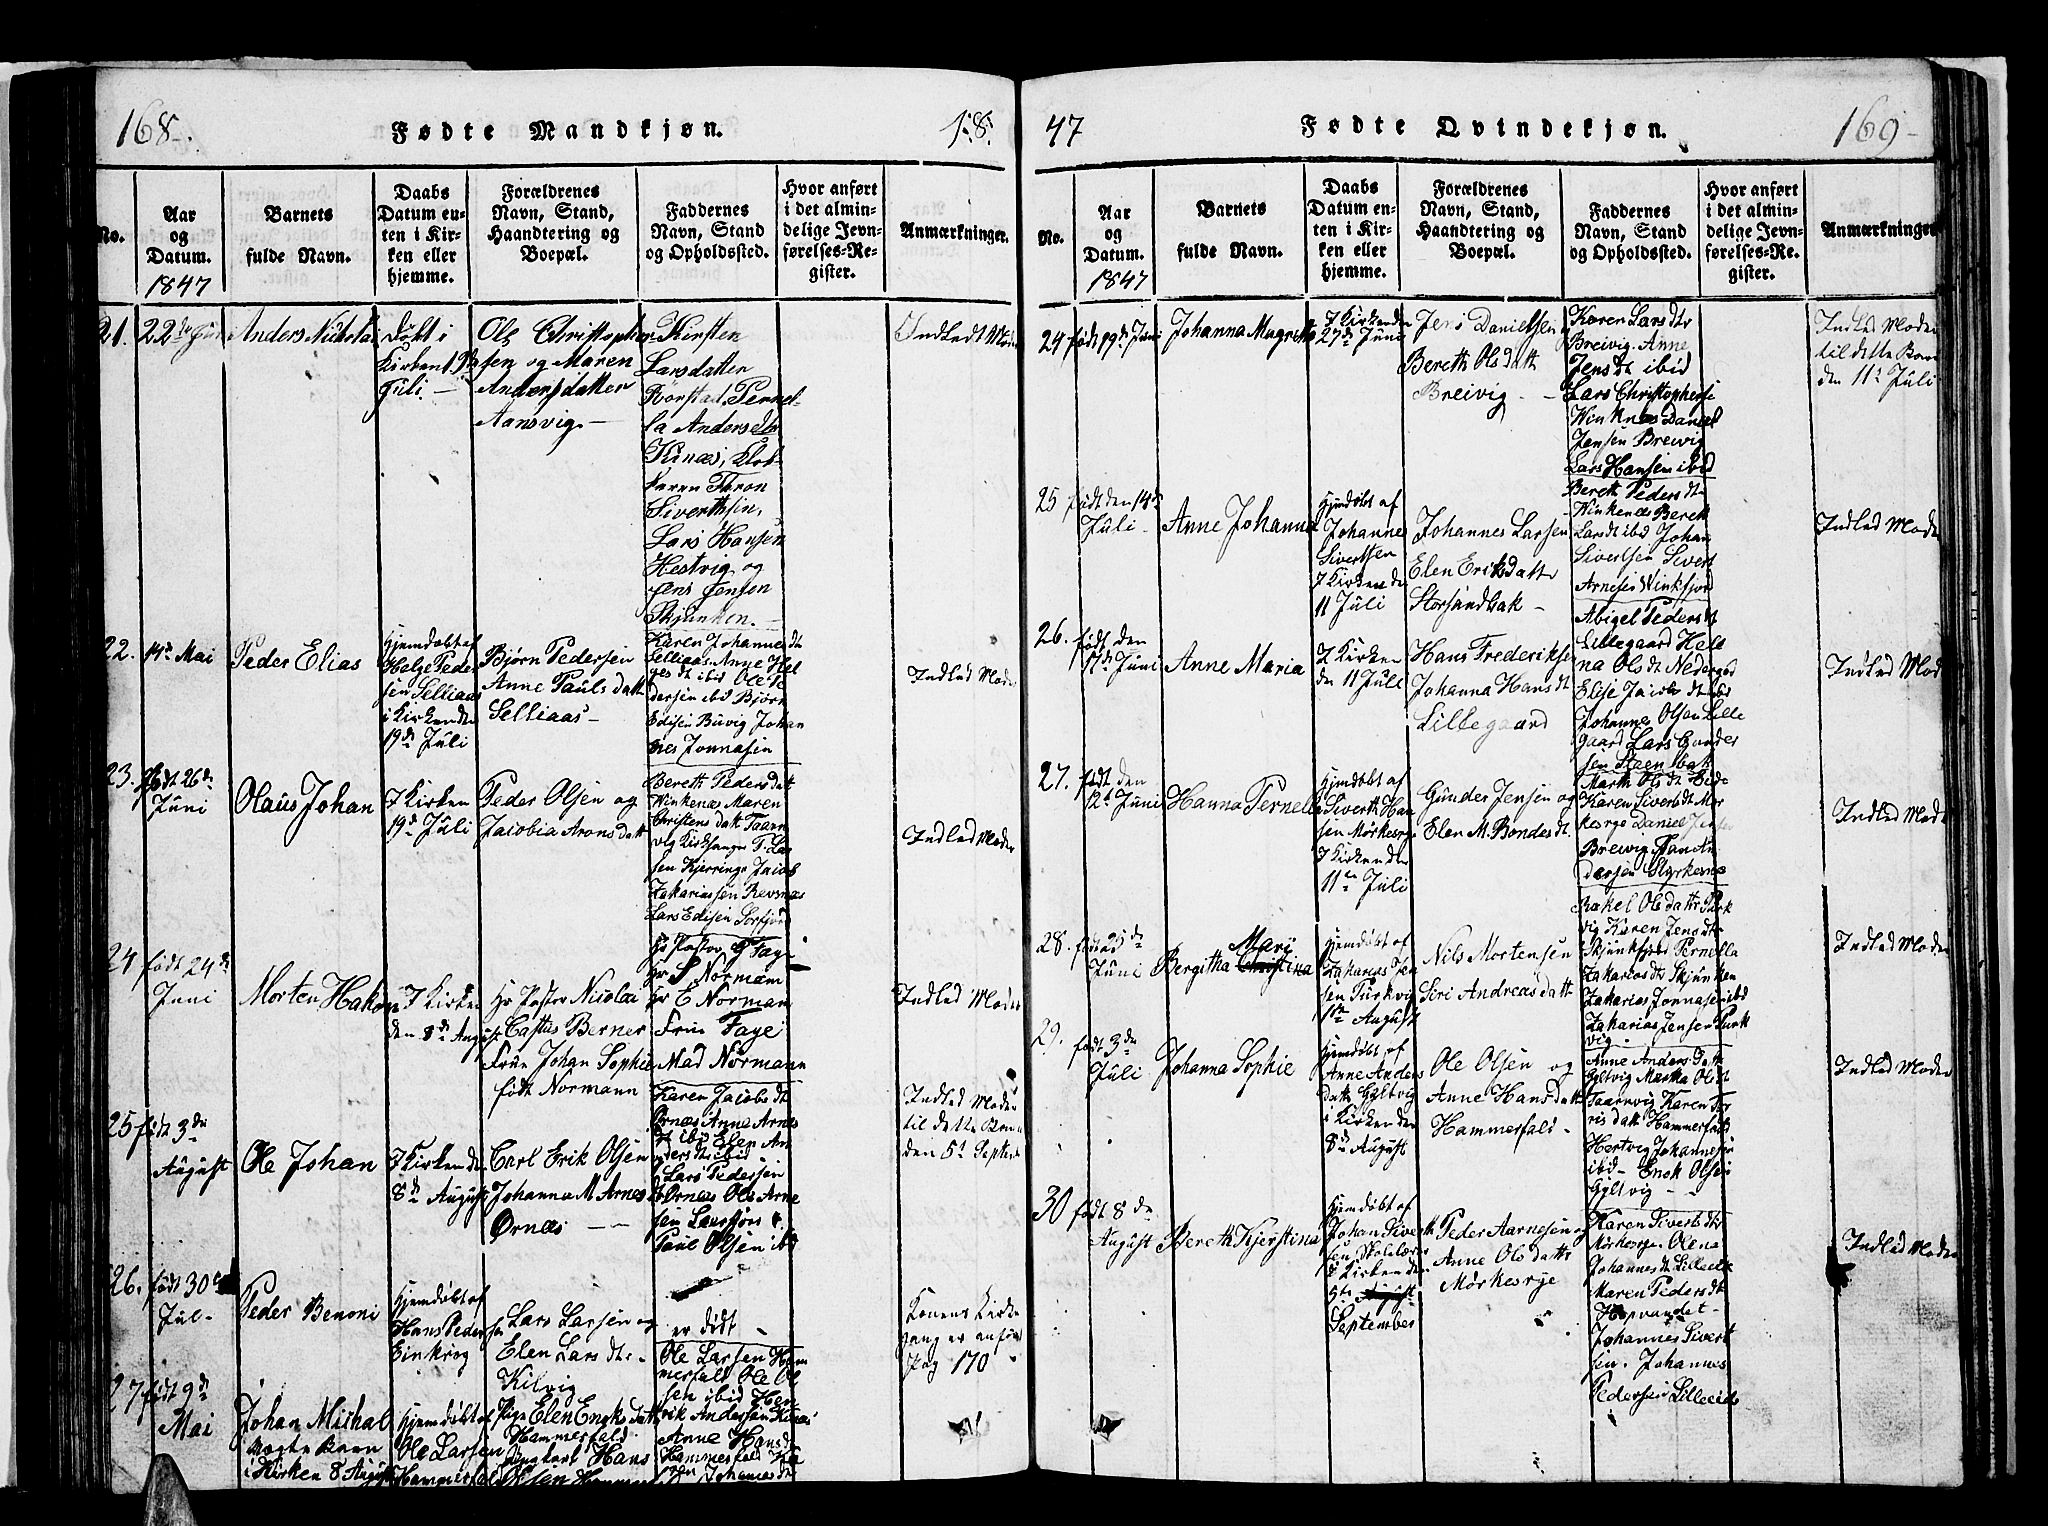 168
Fødte Mandkjøn.
18
No.
Aar og Datum.
1847
Barnets fulde Navn.
Daabs Datum enten i Kirken eller hjemme.
Forældrenes Navn, Stand, Haandtering og Boepæl.
Faddernes Navn, Stand og Opholdssted.
Hvor anført i det almindelige Jevnførelses-Register.
Anmærkninger.
21.
22de Juni
Anders Nickolai
Døbt i
Kirken
Juli.
Ole Christophersen og Maren
Andersdatter
Aansvig
Kirsten
Larsdatter
Rørstad, Pernel-
la Andersdtr
Kinæs, Klok-
keren Thron
Siverthsen,
Lars Hansen
Hestvig og
Jens Jensen
Skjunken.
Indledt Moder
22.
14de Mai
Peder Elias
Hjemdøbt af
Helge Peder
sen Selliaas
i Kirken den
19de Juli
Bjørn Pedersen
Anne Pauls datt
Selliaas
Karen Johannes dt
Selliaas Anne Hel
ges dt ibid Ole Pe
dersen ibid Bjørn
Edisen Buvig Johan
nes Jonnasen
Indled Moder
23.
født 26de
Juni
Olaus Johan
I Kirken
19de Juli
Peder Olsen og
Jacobia Arons datt
Bereth Peders dat
Winkenæs Maren
Christens datt Taarn
vig Kirksanger T. Lar
sen Kjerringø Jacob
Zakariassen Revsnæs
Lars Edisen Sørfjord
Indled Moder
24
født 24de
Juni
Morten Hakon
I Kirken
den 8de August
Hr Pastor Nicolai
Castus Berner
Frue Johan Sophie
født Normann
Hr Pastor Faye
Hr S Normann
Hr E Norman
Frue Faye
Mad Normann
Indled Moder
25
født 3de
August
Ole Johan
I Kirken den
8de August
Carl Erik Olsen
Johanna M Arnes
Ørnæs
Karen Jacobs dt
Ørnæs Anne Arnes
dt ibid Elen An
ders dt ibid
Lars Pedersen
Ørnæs Ole Arne
sen
Paul Olsen ibd
Indled Moder
til dette Barn
den 5te Septem
26.
født 30
Jul-
Peder Benoni
Hjemdøbt af
Hans Peder sen
Einkrog
Lars Larsen og
Elen Lars dtr
Kilvig
er dødt
Konens Kirke
gang er anført
Pag 170
27
født 9de
Mai
Johan Michal
Uægte Barn
i Kirken 8 August
Hjemdøbt af
Ole Larsen
Hammerfal
Pige Elen Enoks datt
Hammerfald
Ungkarl Hans
Olsen Hammer
Ole Larsen Ham
merfald Ole Ol
sen ibid Hen
rik Andersen Kinæs
Anne Hans dt
Hammerfald Ka
ren Johannes dt
47
Fødte Qvindekjøn.
169
No.
Aar og Datum.
1847
Barnets fulde Navn.
Daabs Datum enten i Kirken eller hjemme.
Forældrenes Navn, Stand, Haandtering og Boepæl.
Faddernes Navn, Stand og Opholdssted.
Hvor anført i det almindelige Jevnførelses-Register.
Anmærkninger
24
født 19de Juni
Johanna Magretha
I Kirken den
27de Juni
Jens Danielsen
Bereth Ols datt
Breivig
Karen Lars dtr
Breivig. Anne
Jens dt ibid
Lars Christophersen
Winknæs Daniel
Jensen Breivig
Lars Hansen ibid
Indled Moder
til dette Barn
den 11te Juli
25
født den 14de
Juli
Anne Johanna
Hjemdøbt af
Johannes
Sivertsen
I Kirken den
11 Juli
Johannes Larsen
Elen Eriksdatte
Storsandbak
Bereth Peders dt
Winkenæs Bereth
Lars dt ibid Johan
Sivertsen Sivert
Arnesen Winkfjord
Indled Moder
26.
født den
17de Juni
Anne Maria
I Kirken
den 11 Juli
Hans Frederiksen
Johanna Hans dt
Lillegaard
Abigel Peders dt
Lillegaard Hele
na Ols dt
Elise Jacobs dt ibd
Johanna Olsen Lille
gaard Lars Gunder
sen Steenbak
Indled Moder
27.
født den
12te Juni
Hanna Pernella
Hjemdøbt af
Siverth Han
sen Mørkesrye
I Kirken den
11te Juli
Gunder Jensen og
Elen M. Bondes dt
Marth Ols dt
Karen Siverts dt Mør
kesrye Daniel Jensen
Breivig
dersen Styrkesnæs
Indled Moder
28.
født 25de
Juni
Bergitha Christina Mari
Hjemdøbt af
Zakarias Jen
sen Purkvig
1ste August
Nils Mortensen
Siri Andreas datt
Rakel Ols datt Purk
vig Karen Jens dt
Skjunkfjord Pernella
Zakarias dt Skjunken
Zakarias Jonnasen ibd
Zakarias Jensen Purk
vig.
Indled Moder
29.
født 3de
Juli
Johanna Sophie
Hjemdøbt af
Anne Anders
datt Gyltvig
i Kirken den
8de August
Ole Olsen og
Anne Hans datt
Hammerfald
Anne Anders datt
Gyltvig Martha Ols dt
Taarnvig Karen Tor
ris datt Hammerfald
Hertvig Johannesen
ibid Enok Olsen
Gyltvig
Indled Moder
30
født 8de
August
Bereth Kjerstina
Hjemdøbt af
Johan Siverth
sen
I Kirken den
5te August
September
Peder Aarnesen og
Anne Ols datter
Mørkesrye
Karen Siverts dtr
Mørkesrye. Olena
Johannes dt Lilleeide
Maren Peders dt
Hopvandet
Johannes Sivert
sen. Johannes
Pedersen Lilleeide
Indled Moder